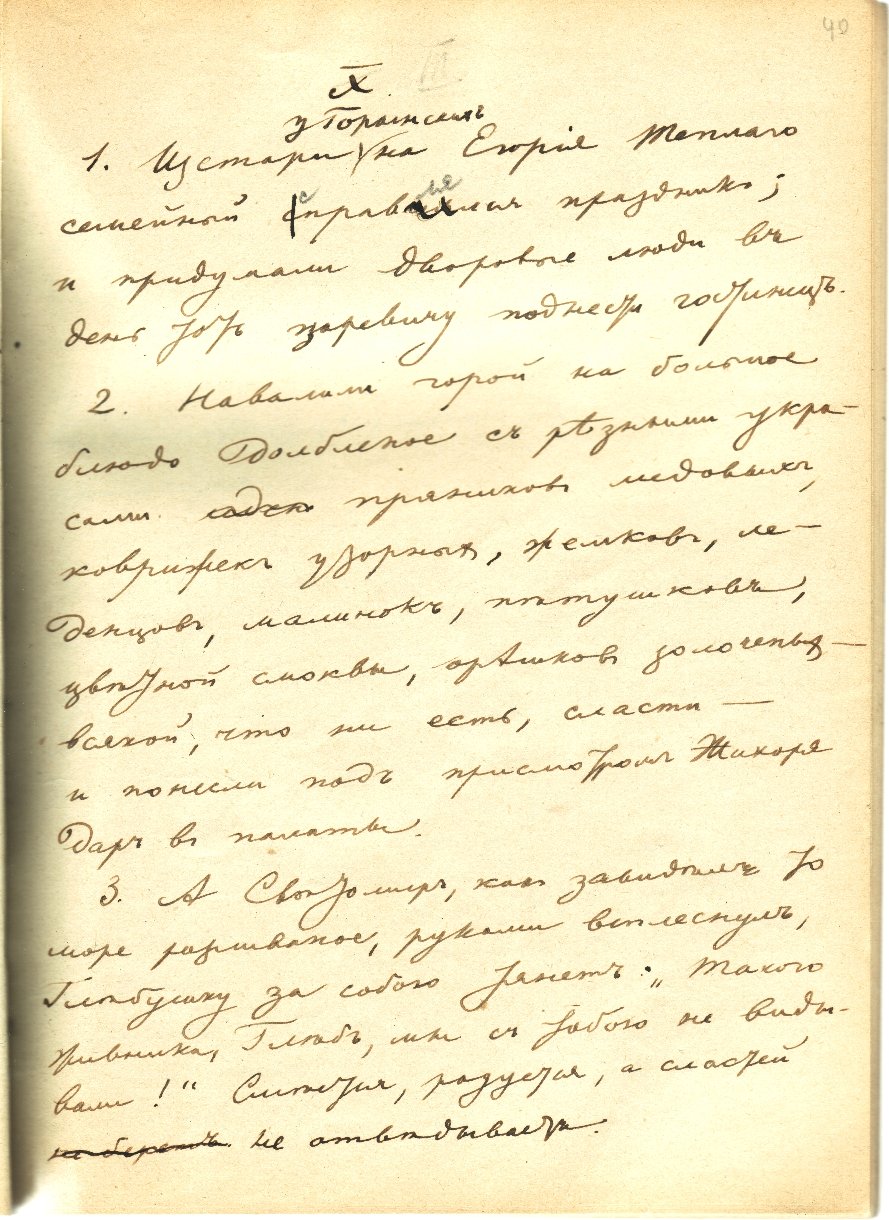 40
III
X
у Горынскихъ
1. Изстари на Егорія Теплаго
семейный справлялся праздникъ;
и придумали дворовые люди въ
день тотъ царевичу поднести гостинецъ.
2. Навалили горой на большое
блюдо долбленое съ рѣзными укра-
сами пряниковъ медовыхъ,
коврижекъ узорныхъ, жемковъ, ле-
денцовъ, малинокъ, пѣтушковъ,
цвѣтной смоквы, орѣшковъ золоченыхъ —
всякой, что ни есть, сласти —
и понесли подъ присмотромъ Жихоря
даръ въ палаты.
3. А Свѣтомиръ, какъ завидѣлъ то
море разливаное, руками всплеснулъ,
Глѣбушку за собою тянетъ: „Такого
дивника, Глѣбъ, мы съ тобою не виды-
вали!“ Смѣется, радуется, а сластей
не беретъ не отвѣдываетъ.